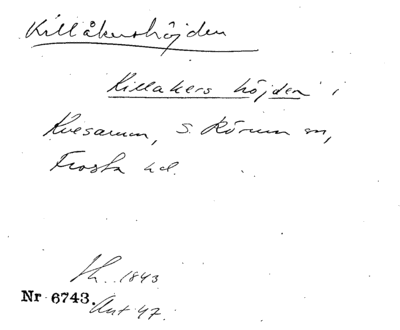 Killåkershöjden
Killakers höjden i
Kvesarum, S. Rörum sn,
Frosta hd.
Sk. 1843
Nr 6743. Ant 47.